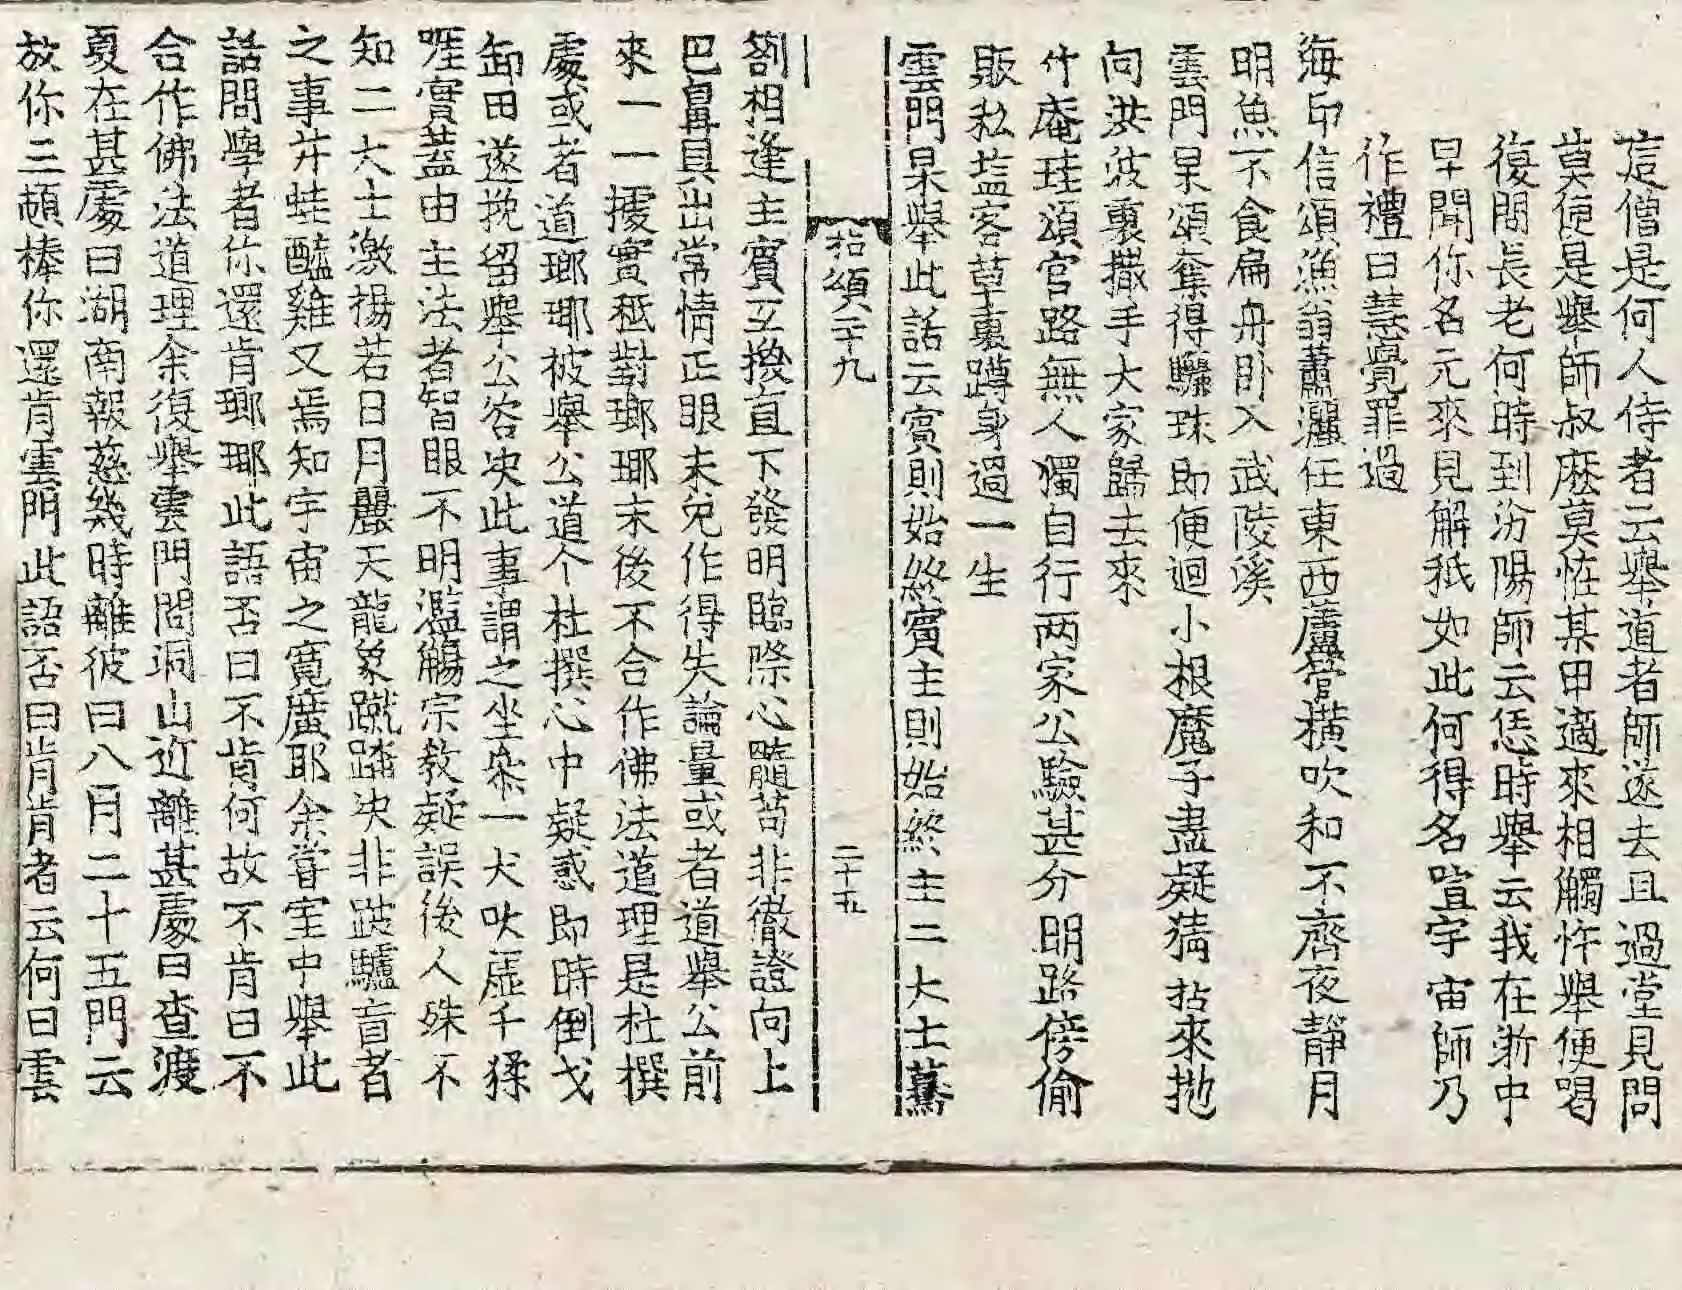 這僧是何人侍者云舉道者師遂去且過堂見問
莫便是舉師叔麽莫恠某甲適來相觸忤舉便喝
復問長老何時到汾陽師云恁時舉云我在浙中
早聞你名元來見解秖如此何得名喧宇宙師乃
作禮曰慧覺罪過
海印信頌漁翁蕭灑任東西蘆管橫吹和不齊夜靜月
明魚不食扁舟卧入武陵溪
雲門杲頌奪得驪珠即便迴小根魔子盡疑猜拈來抛
向洪波裏撒手大家歸去來
竹庵珪頌官路無人獨自行两家公驗甚分明路傍偷
販私塩客草裏蹲身過一生
雲門杲舉此話云賓則始終賓主則始終主二大士驀
拈頌二十九
二十五
劄相逢主賓互換直下發明臨際心髓苟非徹證向上
巴鼻具出常情正眼未免作得失論量或者道舉公前
來一一據實秪對瑯瑘末後不合作佛法道理是杜撰
處或者道瑯瑘被舉公道个杜撰心中疑惑即時倒戈
卸甲遂挽留舉公咨决此事謂之坐
一犬吠虛千猱
啀實蓋由主法者智眼不明濫觴宗教疑誤後人殊不
知二大士激揚若日月麗天龍象蹴踏决非跛驢盲者
之事井蛙醯雞又焉知宇宙之寬廣耶余甞室中舉此
話問學者你還肯瑯瑘此語否曰不肯何故不肯曰不
合作佛法道理余復舉雲門問洞山近離甚處曰查渡
夏在甚處曰湖南報慈幾時離彼曰八月二十五門云
放你三頓棒你還肯雲門此語否曰肯肯者云何曰雲